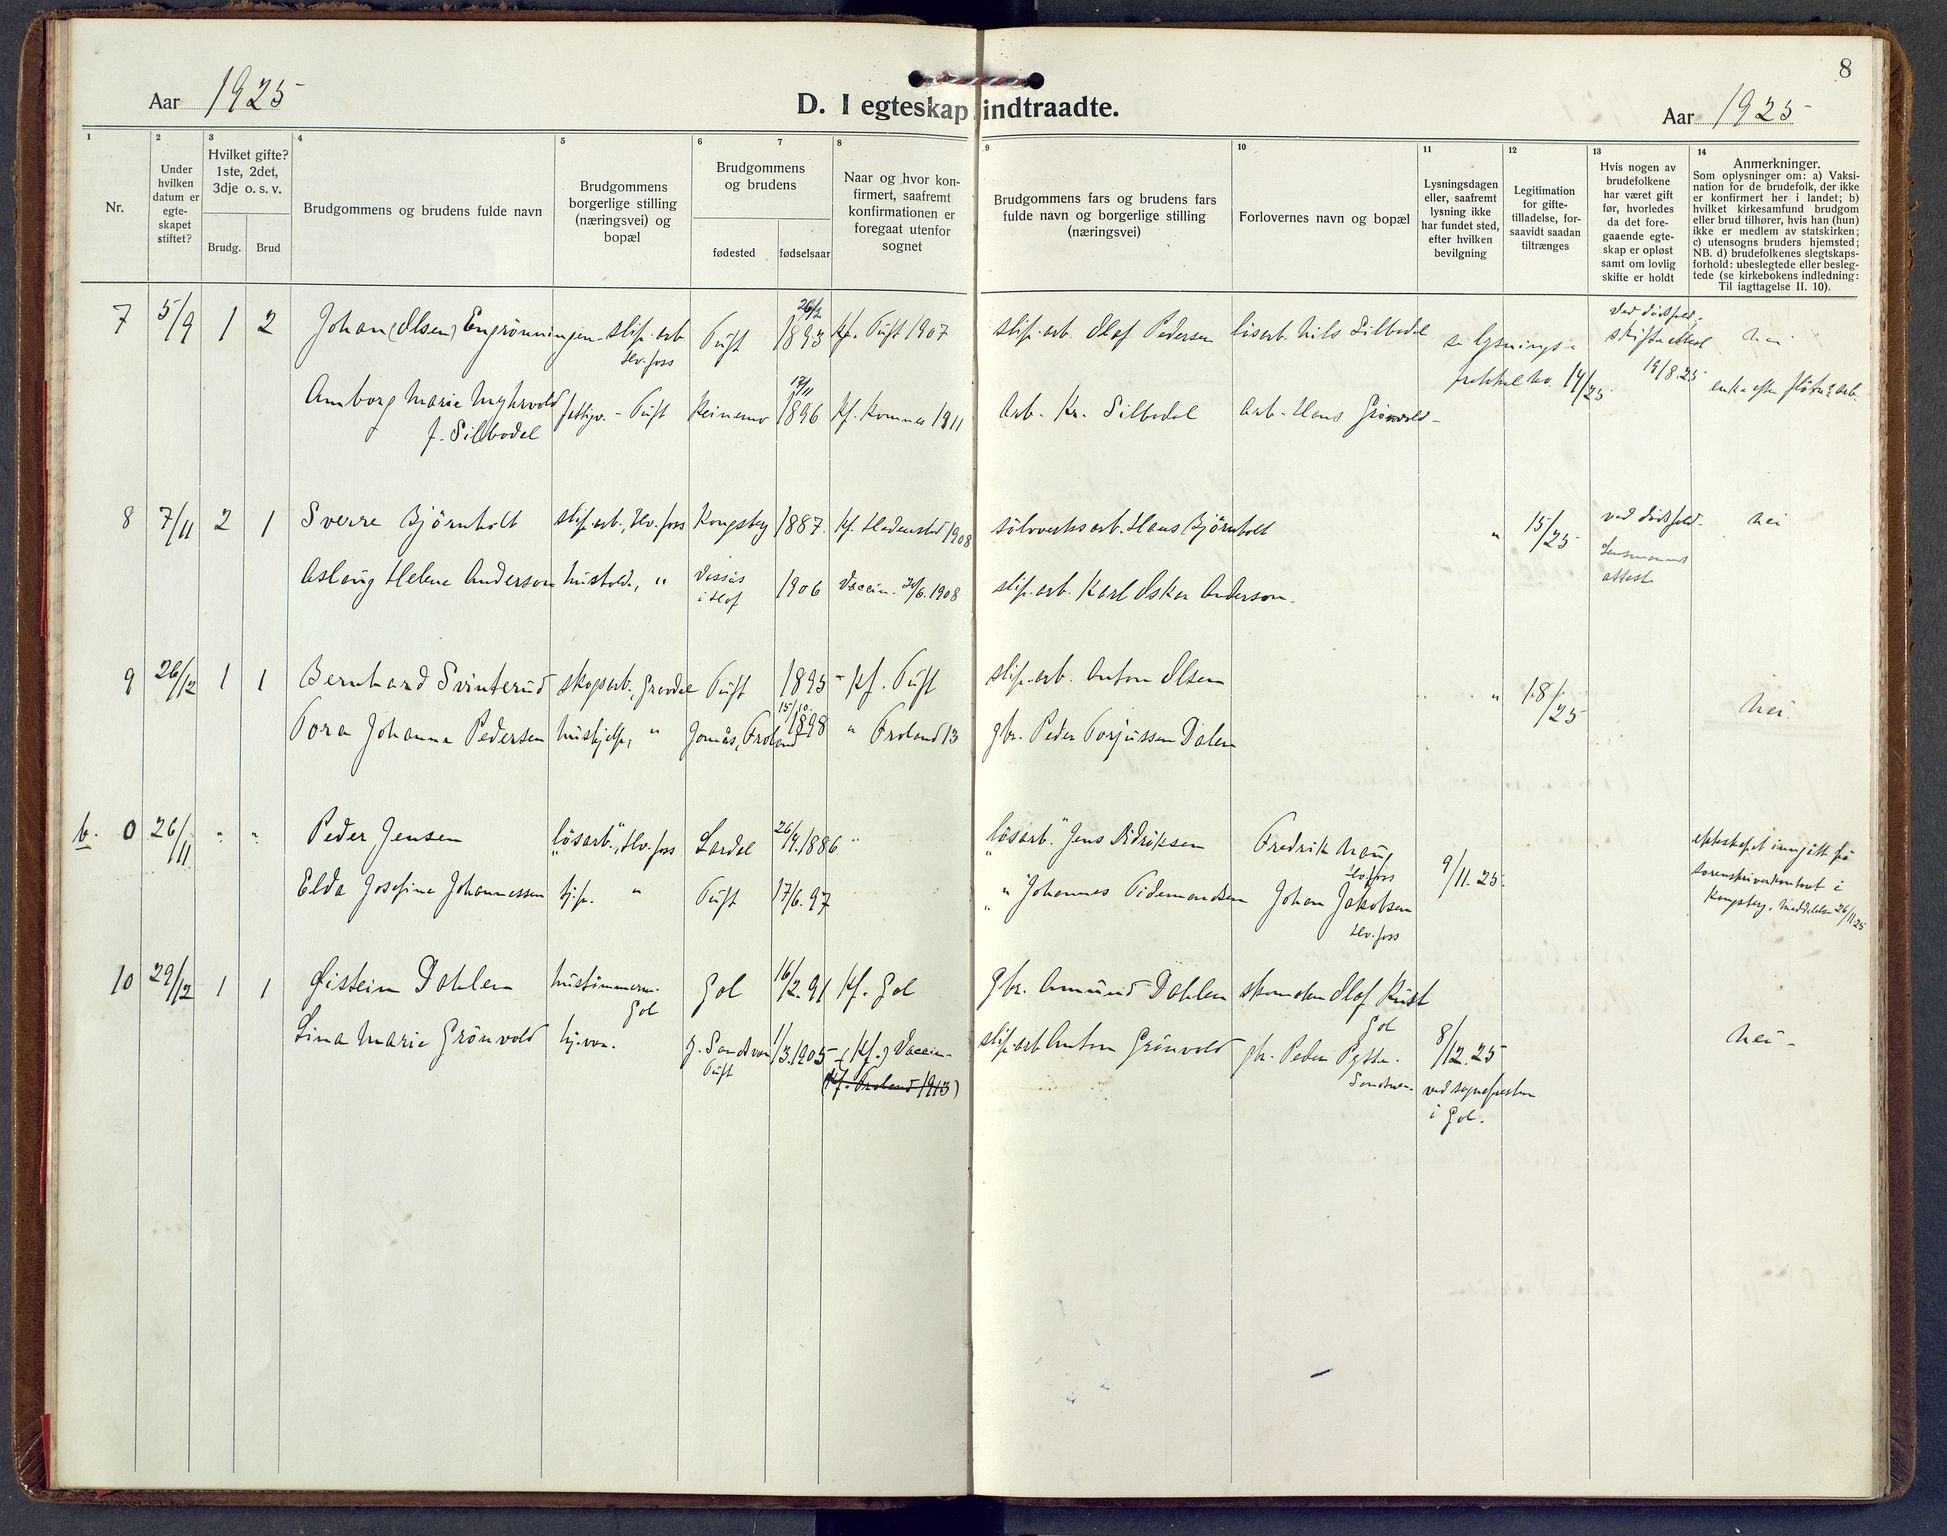 8
Aar 1925
D. I egteskap indtraadte.
Aar 1925
1 2 3 4 5 6 7 8 9 10 11 12 13 14
Nr.
Under hvilken datum er egte- skapet stiftet?
Hvilket gifte? 1ste, 2det, 3dje o. s. v.
Brudg. Brud
Brudgommens og brudens fulde navn
Brudgommens borgerlige stilling (næringsvei) og bopæl
Brudgommens og brudens
fødested fødselsaar
Naar og hvor kon- firmert, saafremt konfirmationen er foregaat utenfor sognet
Brudgommens fars og brudens fars fulde navn og borgerlige stilling (næringsvei)
Forlovernes navn og bopæl
Lysningsdagen eller, saafremt lysning ikke har fundet sted, efter hvilken bevilgning
Legitimation for gifte- tilladelse, for- saavidt saadan tiltrænges
Hvis nogen av brudefolkene har været gift før, hvorledes da det fore- gaaende egte- skap er opløst samt om lovlig skifte er holdt
Anmerkninger.
Som oplysninger om: a) Vaksi- nation for de brudefolk, der ikke er konfirmert her i landet; b) hvilket kirkesamfund brudgom eller brud tilhører, hvis han (hun) ikke er medlem av statskirken; c) utensogns bruders hjemsted; NB. d) brudefolkenes slegtskaps- forhold: ubeslegtede eller besleg- tede (se kirkebokens indledning: Til iagttagelse II. 10).
7 5/9 1 2 Johan (Olsen) Engrønningen slip. arb. Hv. foss Tuft 26/2 1893 Kf. Tuft 1907 slip. arb. Olaf Pedersen løsarb. Nils Silbodal se lysnings- 14/25 ved dødsfald, skifteattest 19/8.25 nei
Amborg Marie Myhrvold f. Silbodal Tuft 17/11 1896 Kf. Komnes 1911 Arb. Kr. Silbodal Arb. Hans Grønvold enke efter arb.
8 7/11 2 1 Sverre Bjørnholt slip. arb., Hv. foss Kongsberg 1887 Kf. Hedenstad 1908 sølvverksarb. Hans Bjørnholt " 15/25 ved dødsfald. Lensmannsattest nei
Aslaug Helene Anderson hushold., " i Hof 1906 Vaccin. 1908 slip. arb. Karl Oskar Anderson.
9 26/12 1 1 Bernhard Svinterud skogsarb., Tuft 1895 Kf. Tuft slip. arb. Anton Olsen " 18/25 nei
Tora Johanna Pedersen hushjelp, " Froland 15/10. 1898 " Froland 13 gbr. Peder Torjussen Dalen
b. 0 26/11 " " Peder Jensen "løsarb.", Hv. foss Lardal 26/4.1886 " "løsarb." Jens Didriksen Fredrik Haug Hv. foss 9/11.25. ekteskapet inngått på sorenskriverkontoret i Kongsberg. Meddelelse 26/11 25
Elda Josefine Johannessen hjp. " Tuft 17/6. 97 " Johannes Tidemandsen Johan Jakobsen Hv. foss
10 29/12 1 1 Øistein Dahlen hustømmerm. Gol Gol 16/2. 91 Kf. Gol gbr. Amund Dahlen skomaker Olaf Gol 8/12.25 ved sognepresten i Gol. nei
Lina Marie Grønvold hj. vær. Tuft 1/3.1905 (Kf.) Vaccin. (Kf. Froland 1913) slip. arb Anton Grønvold gbr. Peder